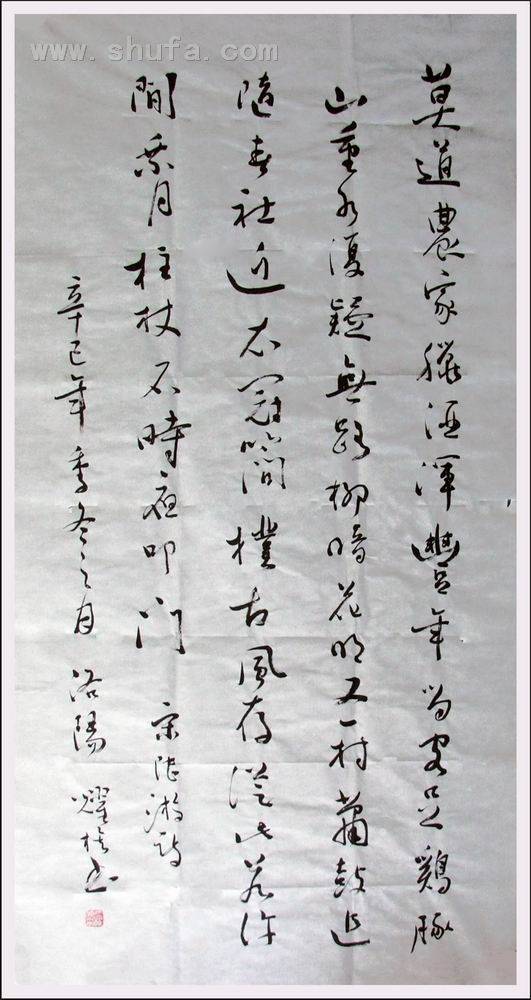 www.shufa.com
莫道農家臘酒渾豐年留客足鷄豚
山重水復疑無路柳暗花明又一村蕭鼓追
隨春社近衣冠簡樸古風存從此若許
閒乘月柱杖不時夜叩門 宋陸游詩
辛巳年季冬之月 洛陽 書